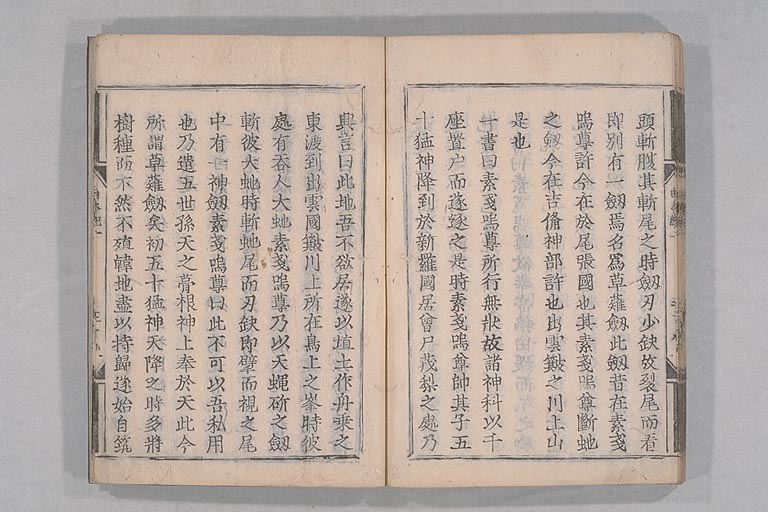 頭斬腹其斬尾之時劔刃少缺故裂尾而看
即別有一劔焉名爲草薙劔此劔昔在素戔
嗚尊許今在於尾張國也其素戔嗚尊斷虵
之劔今在吉備神部許也出雲簸之川上山
是也
一書曰素戔嗚尊所行無狀故諸神科以千
座置戶而遂逐之是時素戔嗚尊帥其子五
十猛神降到於新羅國居曾尸茂梨之處乃
興言曰此地吾不欲居遂以埴土作舟乘之
東渡到出雲國簸川上所在鳥上之峯時彼
處有吞人大虵素戔嗚尊乃以天蠅斫之劔
斬彼大虵時斬虵尾而刃缺即擘而視之尾
中有一神劔素戔嗚尊曰此不可以吾私用
也乃遣五世孫天之葺根神上奉於天此今
所謂草薙劔矣初五十猛神天降之時多將
樹種而下然不殖韓地盡以持歸遂始自筑